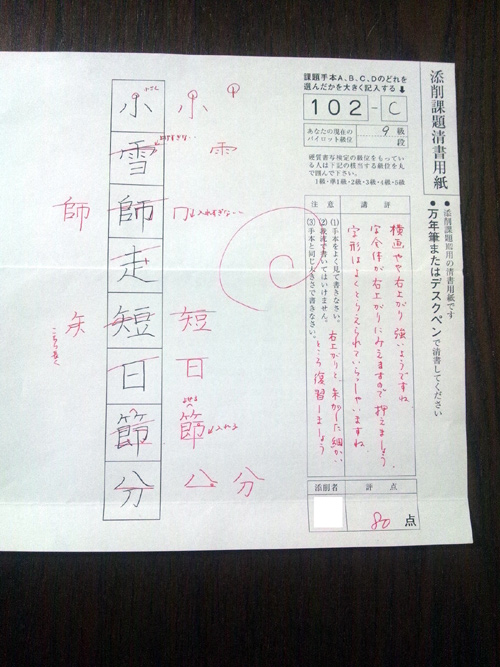 添削課題清書用紙
●添削課題臨用の清書用紙です
●万年筆またはデスクペンで清書してください
課題手本A、B、C、Dのどれを
選んだかを大きく記入する
102-C
あなたの現在の
パイロット級位
9級
段
硬筆書写検定の級位をもってい
る人は下記の該当する級位を丸
で囲んで下さい。
1級・準1級・2級・3級・4級・5級
講評
横画やや右上がり強いようですね
字全体が右上がりにみえますので押えましょう
字形はよくとらえられていらっしゃいますね
右上がりと朱がした細かい
ところ復習しましょう
注意
(1)手本をよく見て書きなさい。
(2)我流で書いてはいけません。
(3)手本と同じ大きさで書きなさい。
評点
80点
添削者
小
雪
師
走
短
日
節
分
小
雨
師
入れすぎない
短
矢
日
節
入れる
八
分